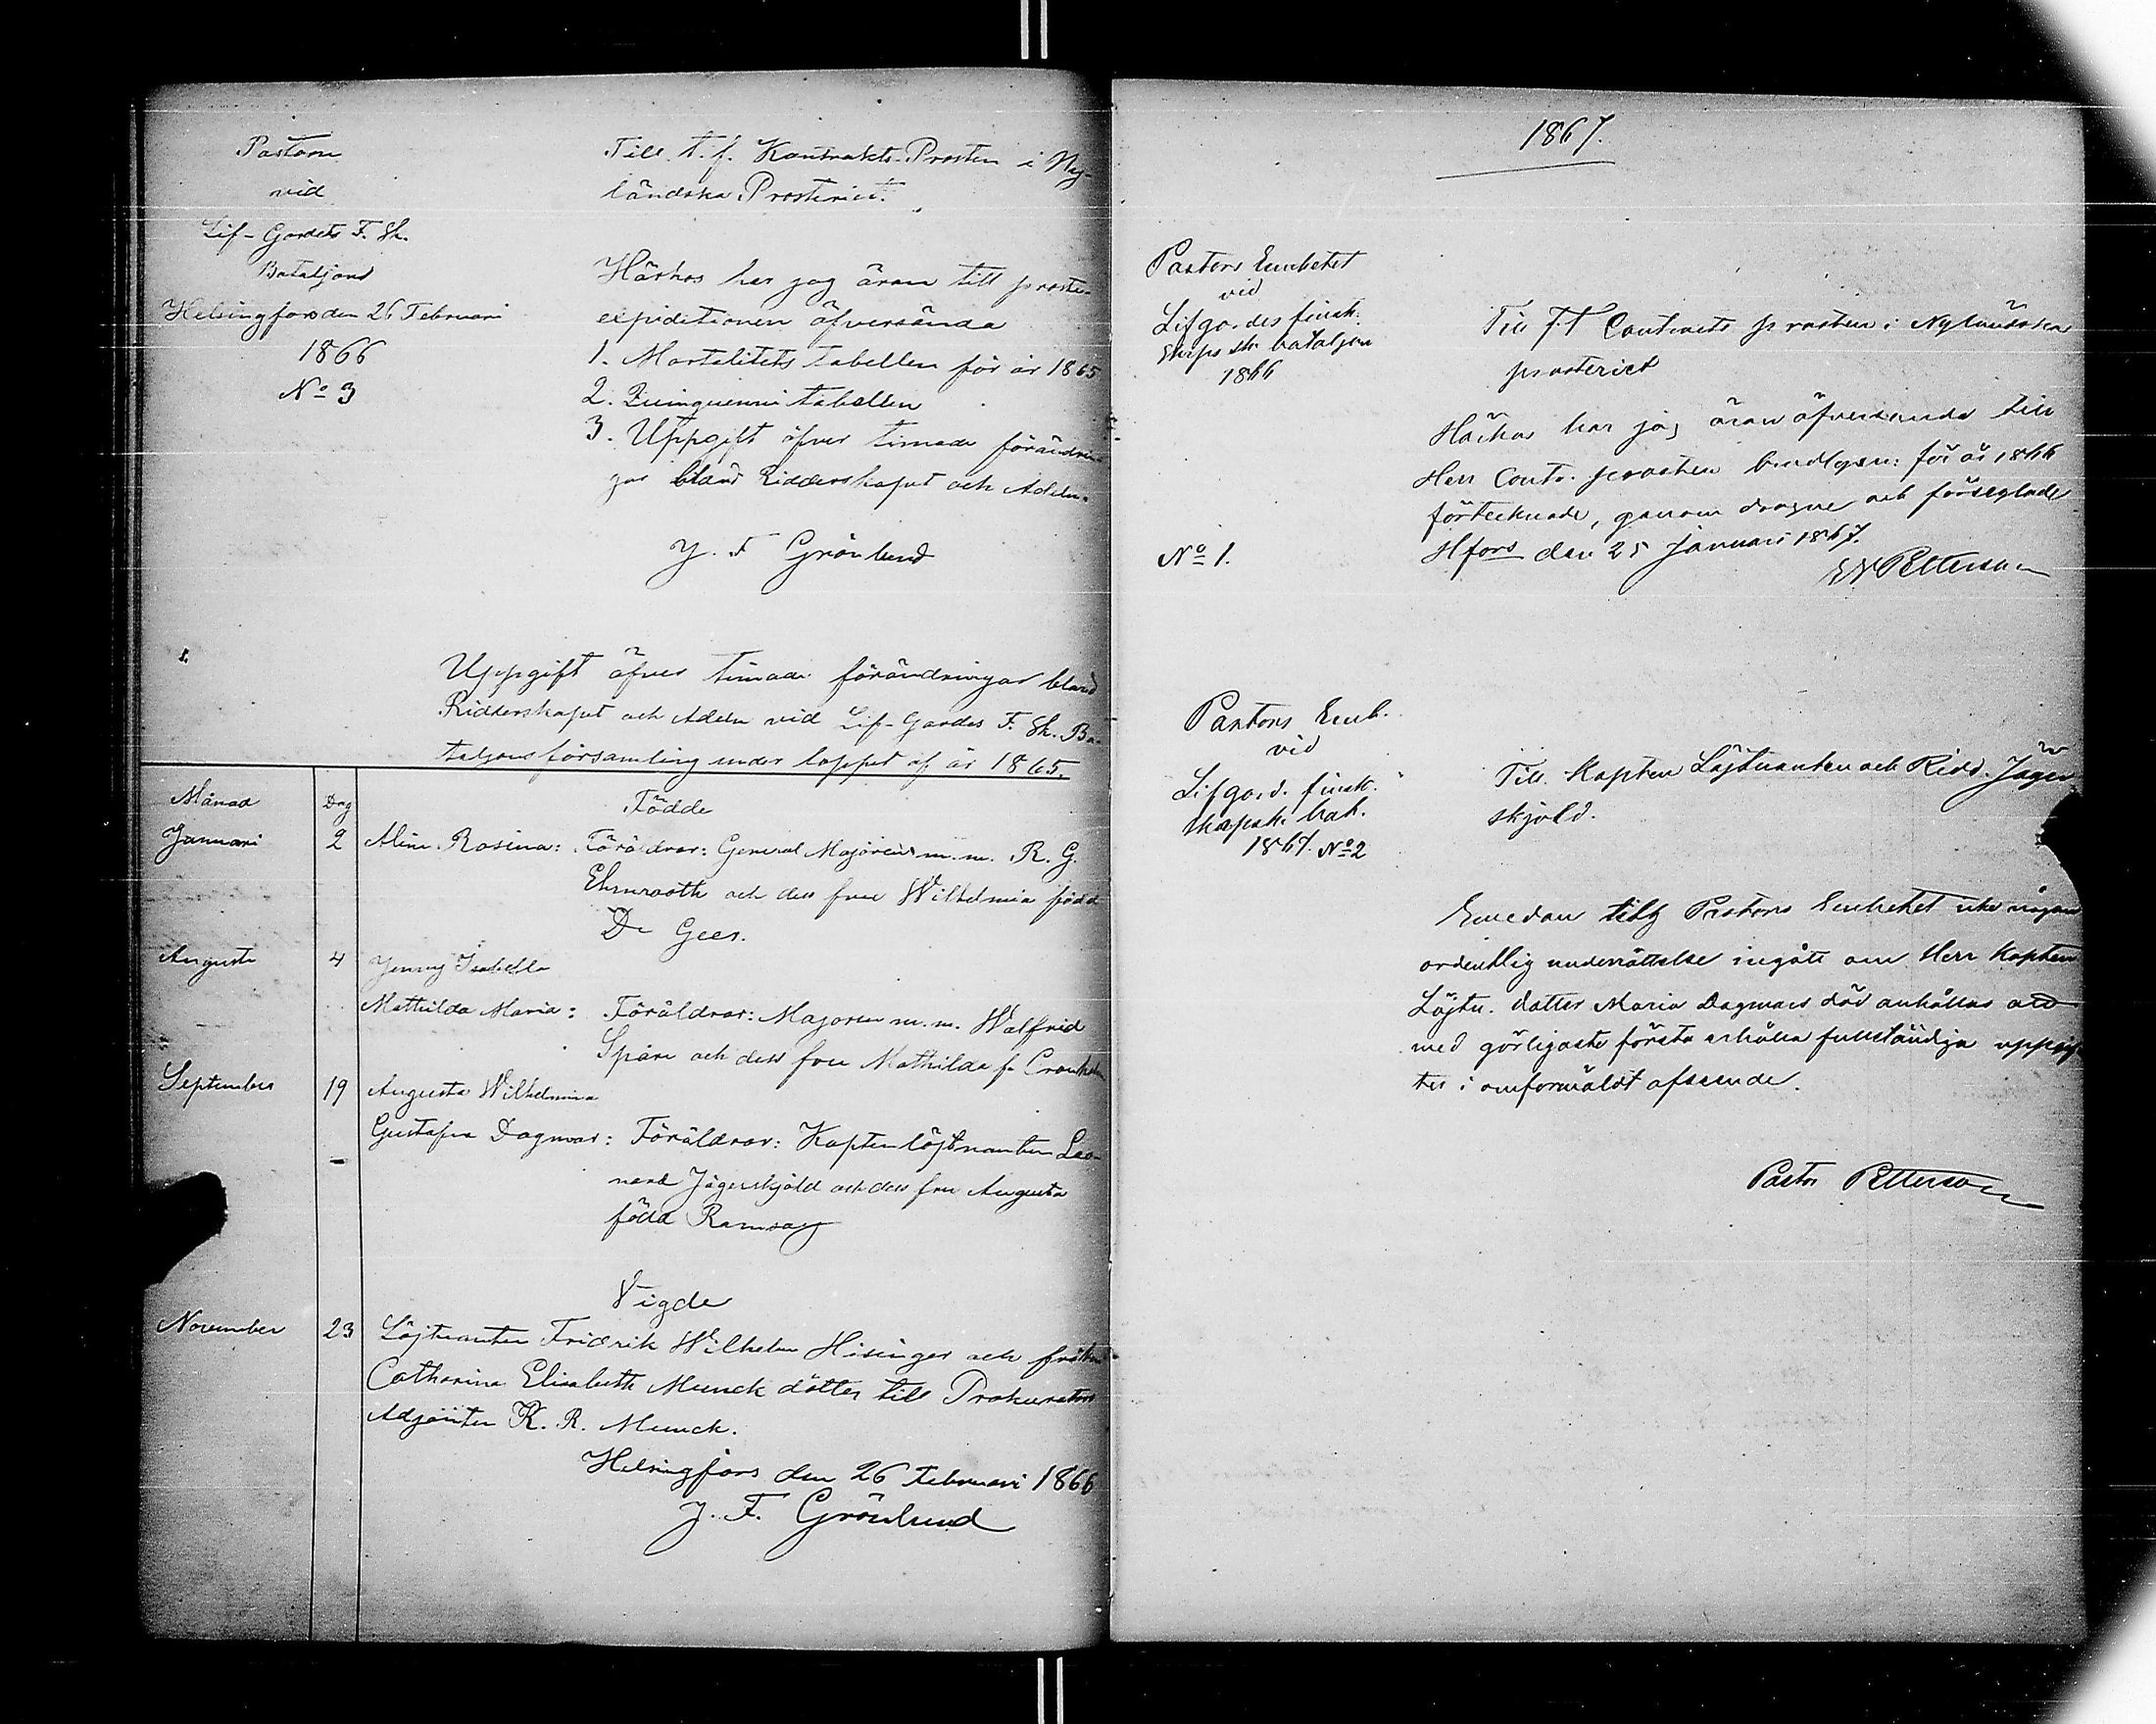 Pastorn
vid
Lif-Gardets F. Sk.
Bataljons
Helsingfors den 26 Februari
1866
No 3
Till t. f. Kontrakts-Prosten i Ny-
ländska Prosteriet.
Härhos har jag äran till proste-
expeditionen öfversända
1. Mortalitets tabellen för år 1865
2. Quinquenni tabellen
3. Uppgift öfver timade förändrin
gar bland Ridderskapet och Adeln.
J. F Grönlund
Uppgift öfver timade förändringar bland
Ridderskapet och Adeln vid Lif-Gardes F. Sk. Ba-
taljons församling under loppet af år 1865.
Månad Dag Födde
Januari 2 Aline Rosina: Föräldrar: General Majoren m.m. R. G.
Ehrnrooth och dess fru Wilhelmia född
De Geer.
Augusti 4 Jenny Isabella
Mathilda Maria: Föräldrar: Majoren m.m. Walfrid
Spåre och dess fru Mathilda f.
September 19 Augusta Wilhelmina
Gustafva Dagmar: Föräldrar: Kaptenlöjtnanten Leo-
nard Jägerskjöld och dess fru Augusta
född Ramsay
Vigde
November 23 Löjtnanten Fridrik Wilhelm Hisinger och fröken
Catharina Elisabeth Munck dotter till Prokurators
Adjointen K. R. Munck.
Helsingfors den 26 Februari 1866
J. F. Grönlund
1867.
Pastors Embetet
vid
Lifgardes finsk.
Skrps sk. bataljon
1866
No 1.
Till T.f Contracts prosten i Nyländska
prosteriet
Härhos har jag äran öfversända till
Herr Contr. prosten för år 1866
förtecknade, genom dragne och förseglade
Hfors den 25 Januari 1867.
Petterson
Pastors Emb.
vid
Lifgard. finsk.
skrpsk. bat.
1867. No 2
Till Kapten Löjtnanten och Ridd. Jäger
skjold.
Emedan till Pastors Embetet icke någon
ordentlig underrättelse ingått om Herr Kapten
Löjtn. dotter Maria Dagmars död anhålles att
med görligaste första erhålla fullständiga uppgif
ter i omförmäldt afseende.
Pastor Petterson